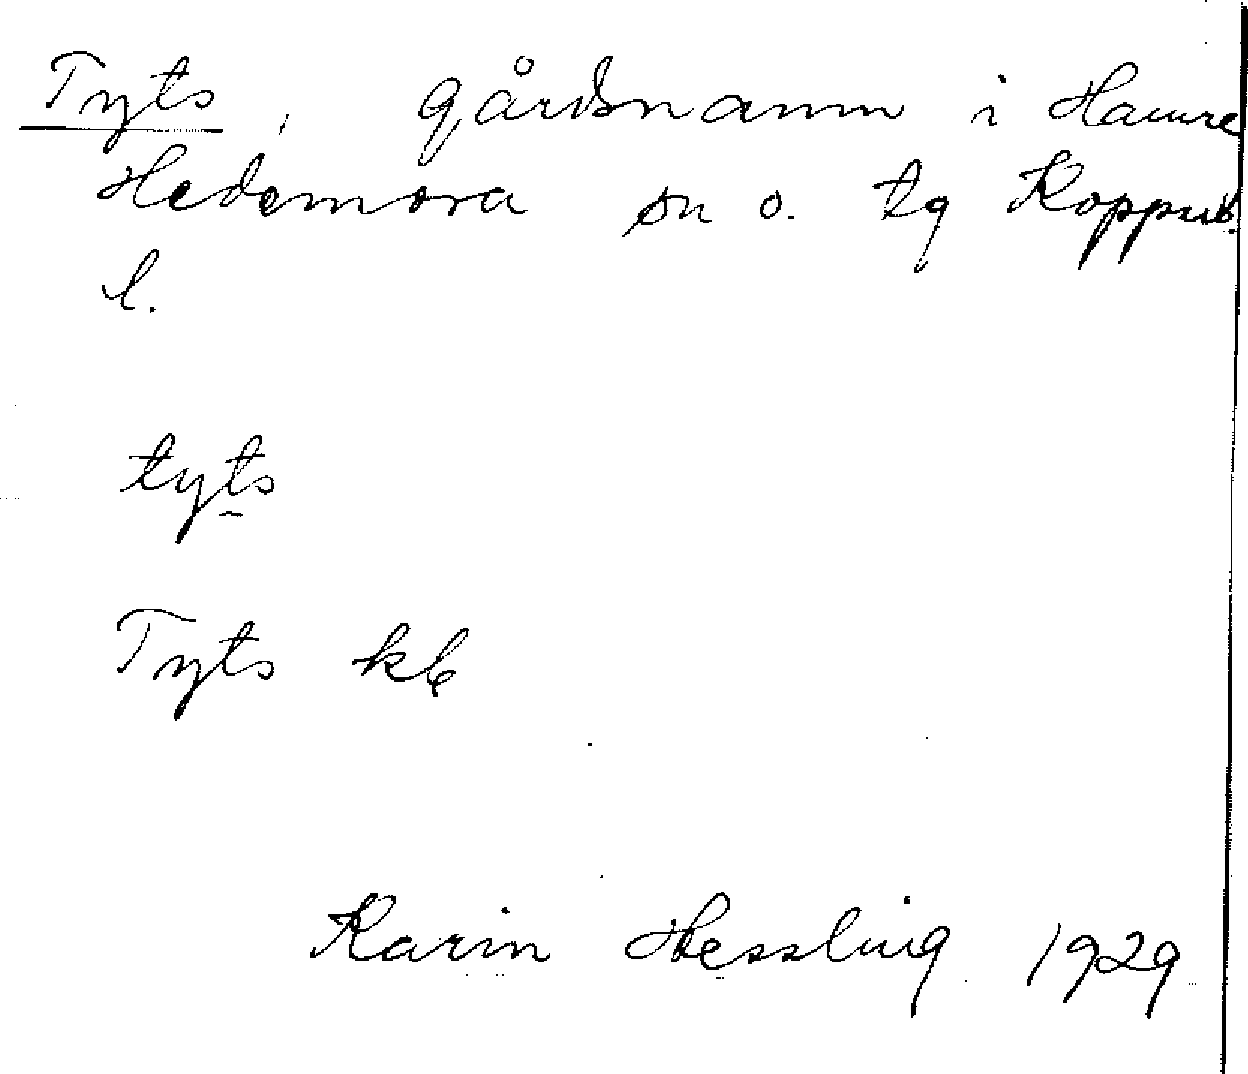 Tyts, gårdsnamn i Hamre
Hedemora sn o. tg Koppbs.
l.
tyts
Tyts kb
Karin Hessling 1929